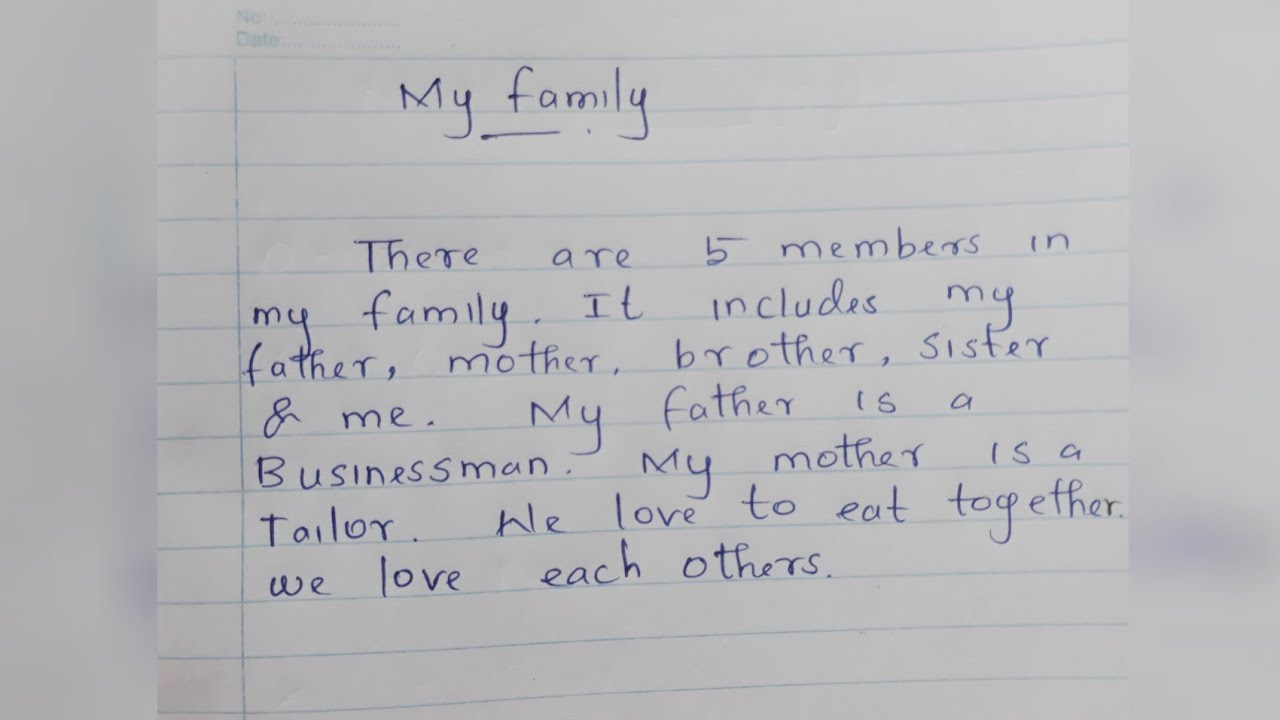 No:
Date
My family
There are 5 members in
my family. It includes my
father, mother, brother, sister
& me. My father is a
Businessman. My mother is a
Tailor. We love to eat together.
we love each others.